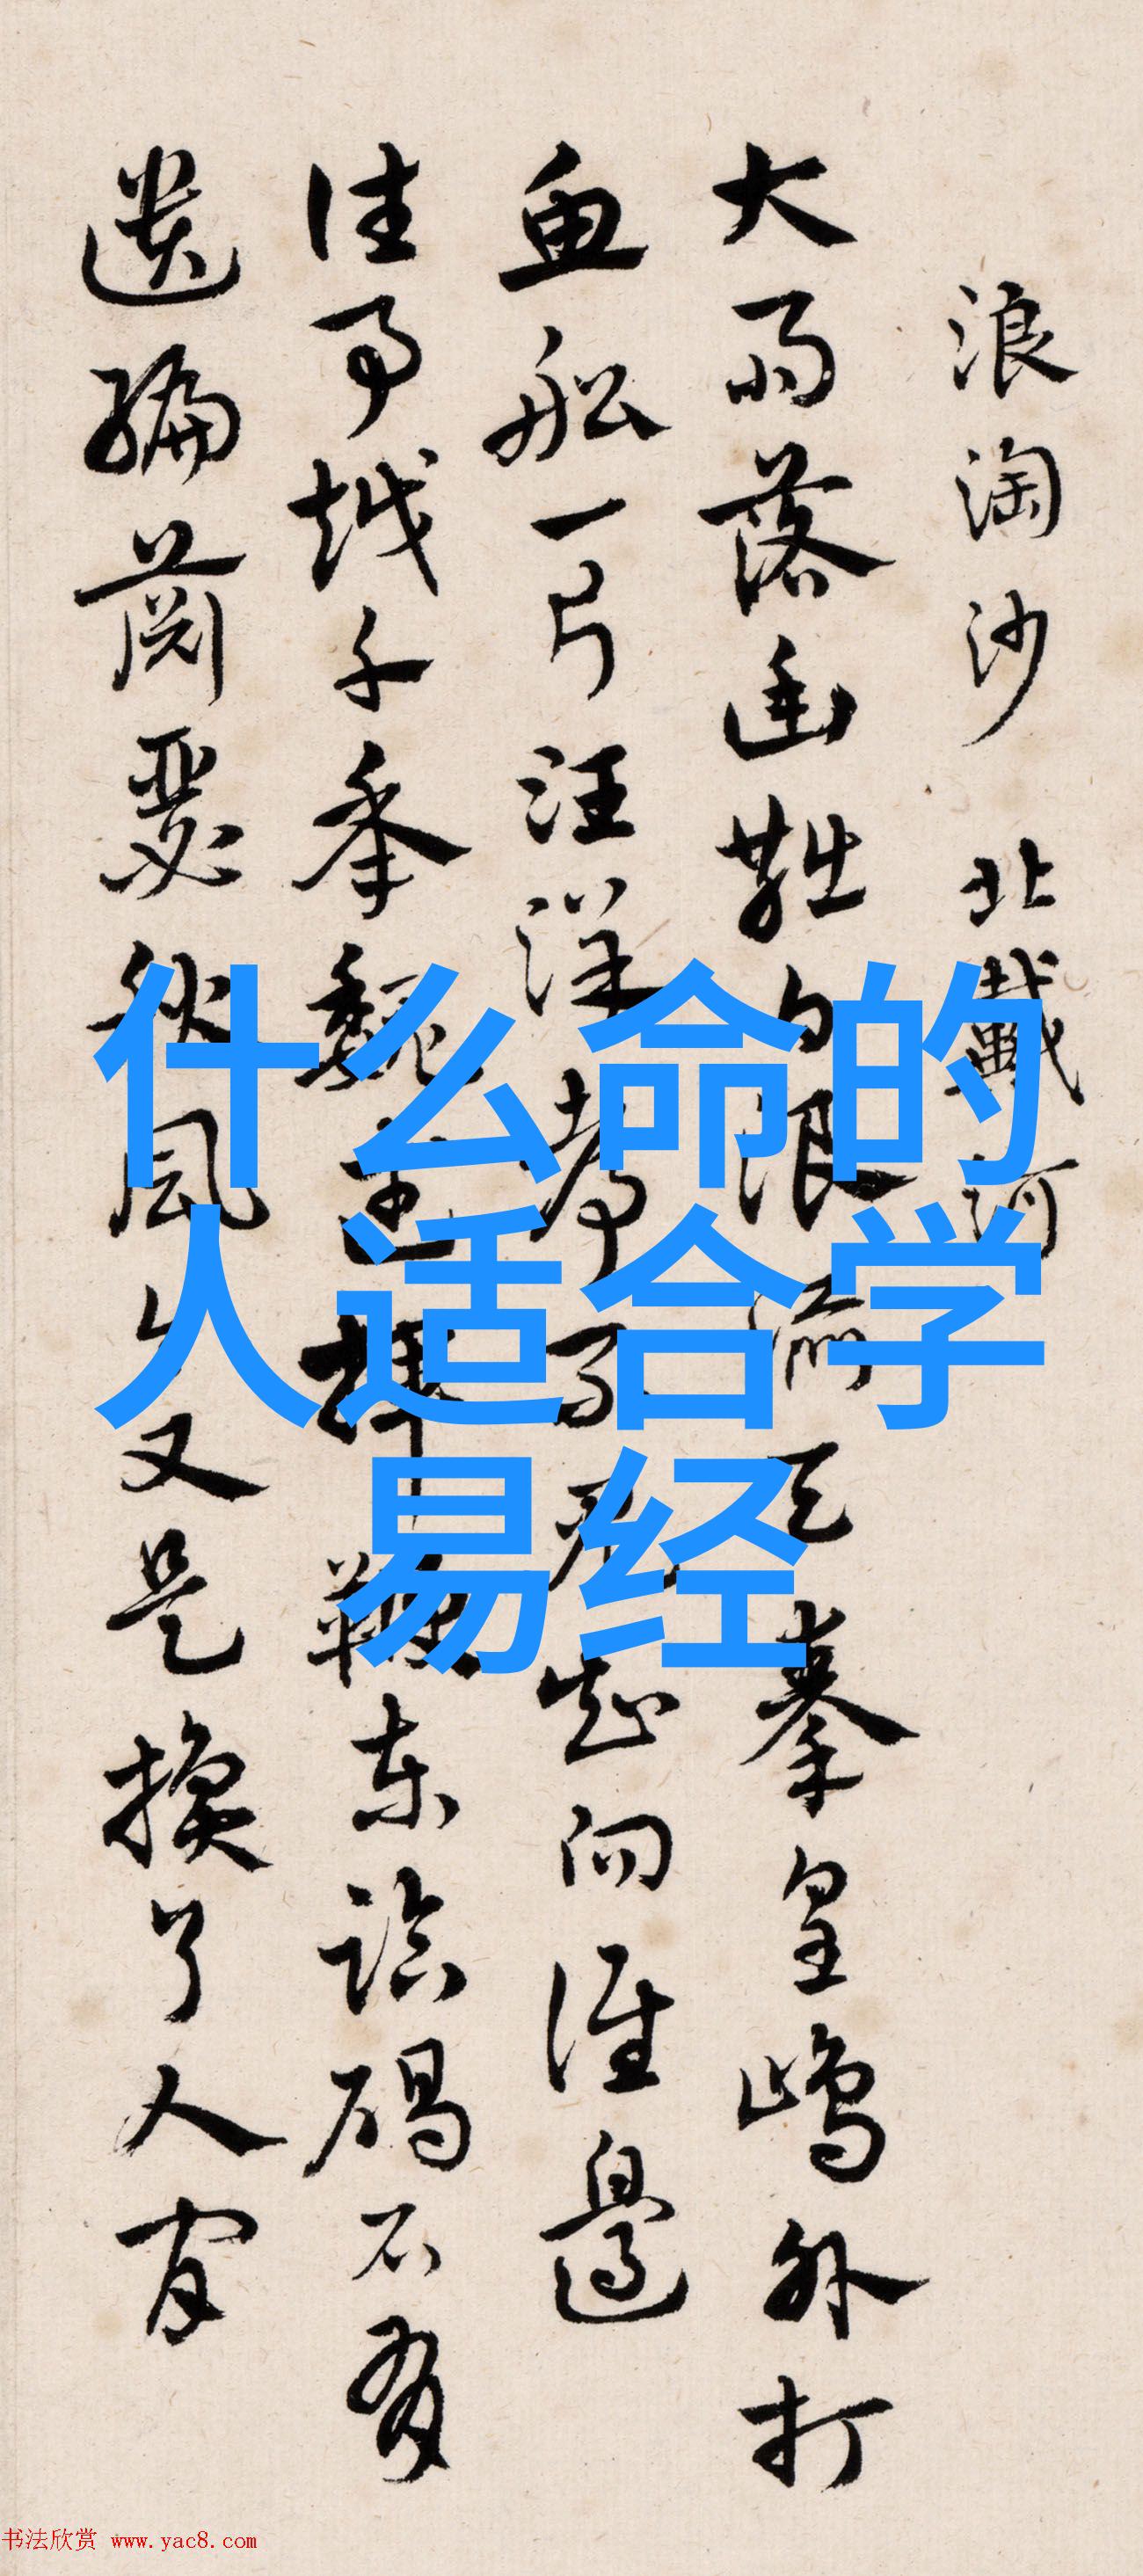 浪淘沙 北戴河
大雨落幽燕白浪滔天秦皇島外打
魚船一片汪洋都不見知向誰邊
往事越千年魏武揮鞭東臨碣石有
遺編蕭瑟秋風今又是換了人间
什么命的
人适合学
易经
书法欣赏 www.yac8.com